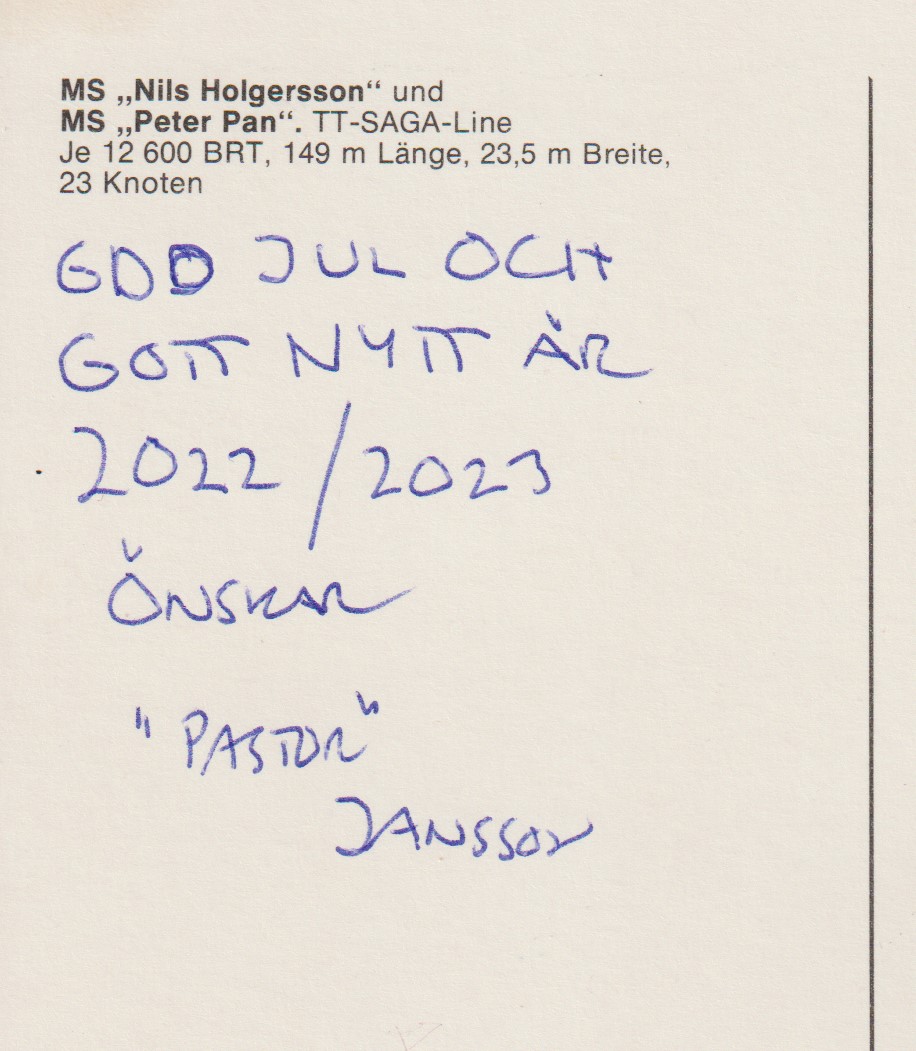 MS „Nils Holgersson“ und
MS „Peter Pan“. TT-SAGA-Line
Je 12 600 BRT, 149 m Länge, 23,5 m Breite,
23 Knoten
GOD JUL OCH
GOTT NYTT ÅR
2022/2023
ÖNSKAR
"PASTOR"
JANSSON